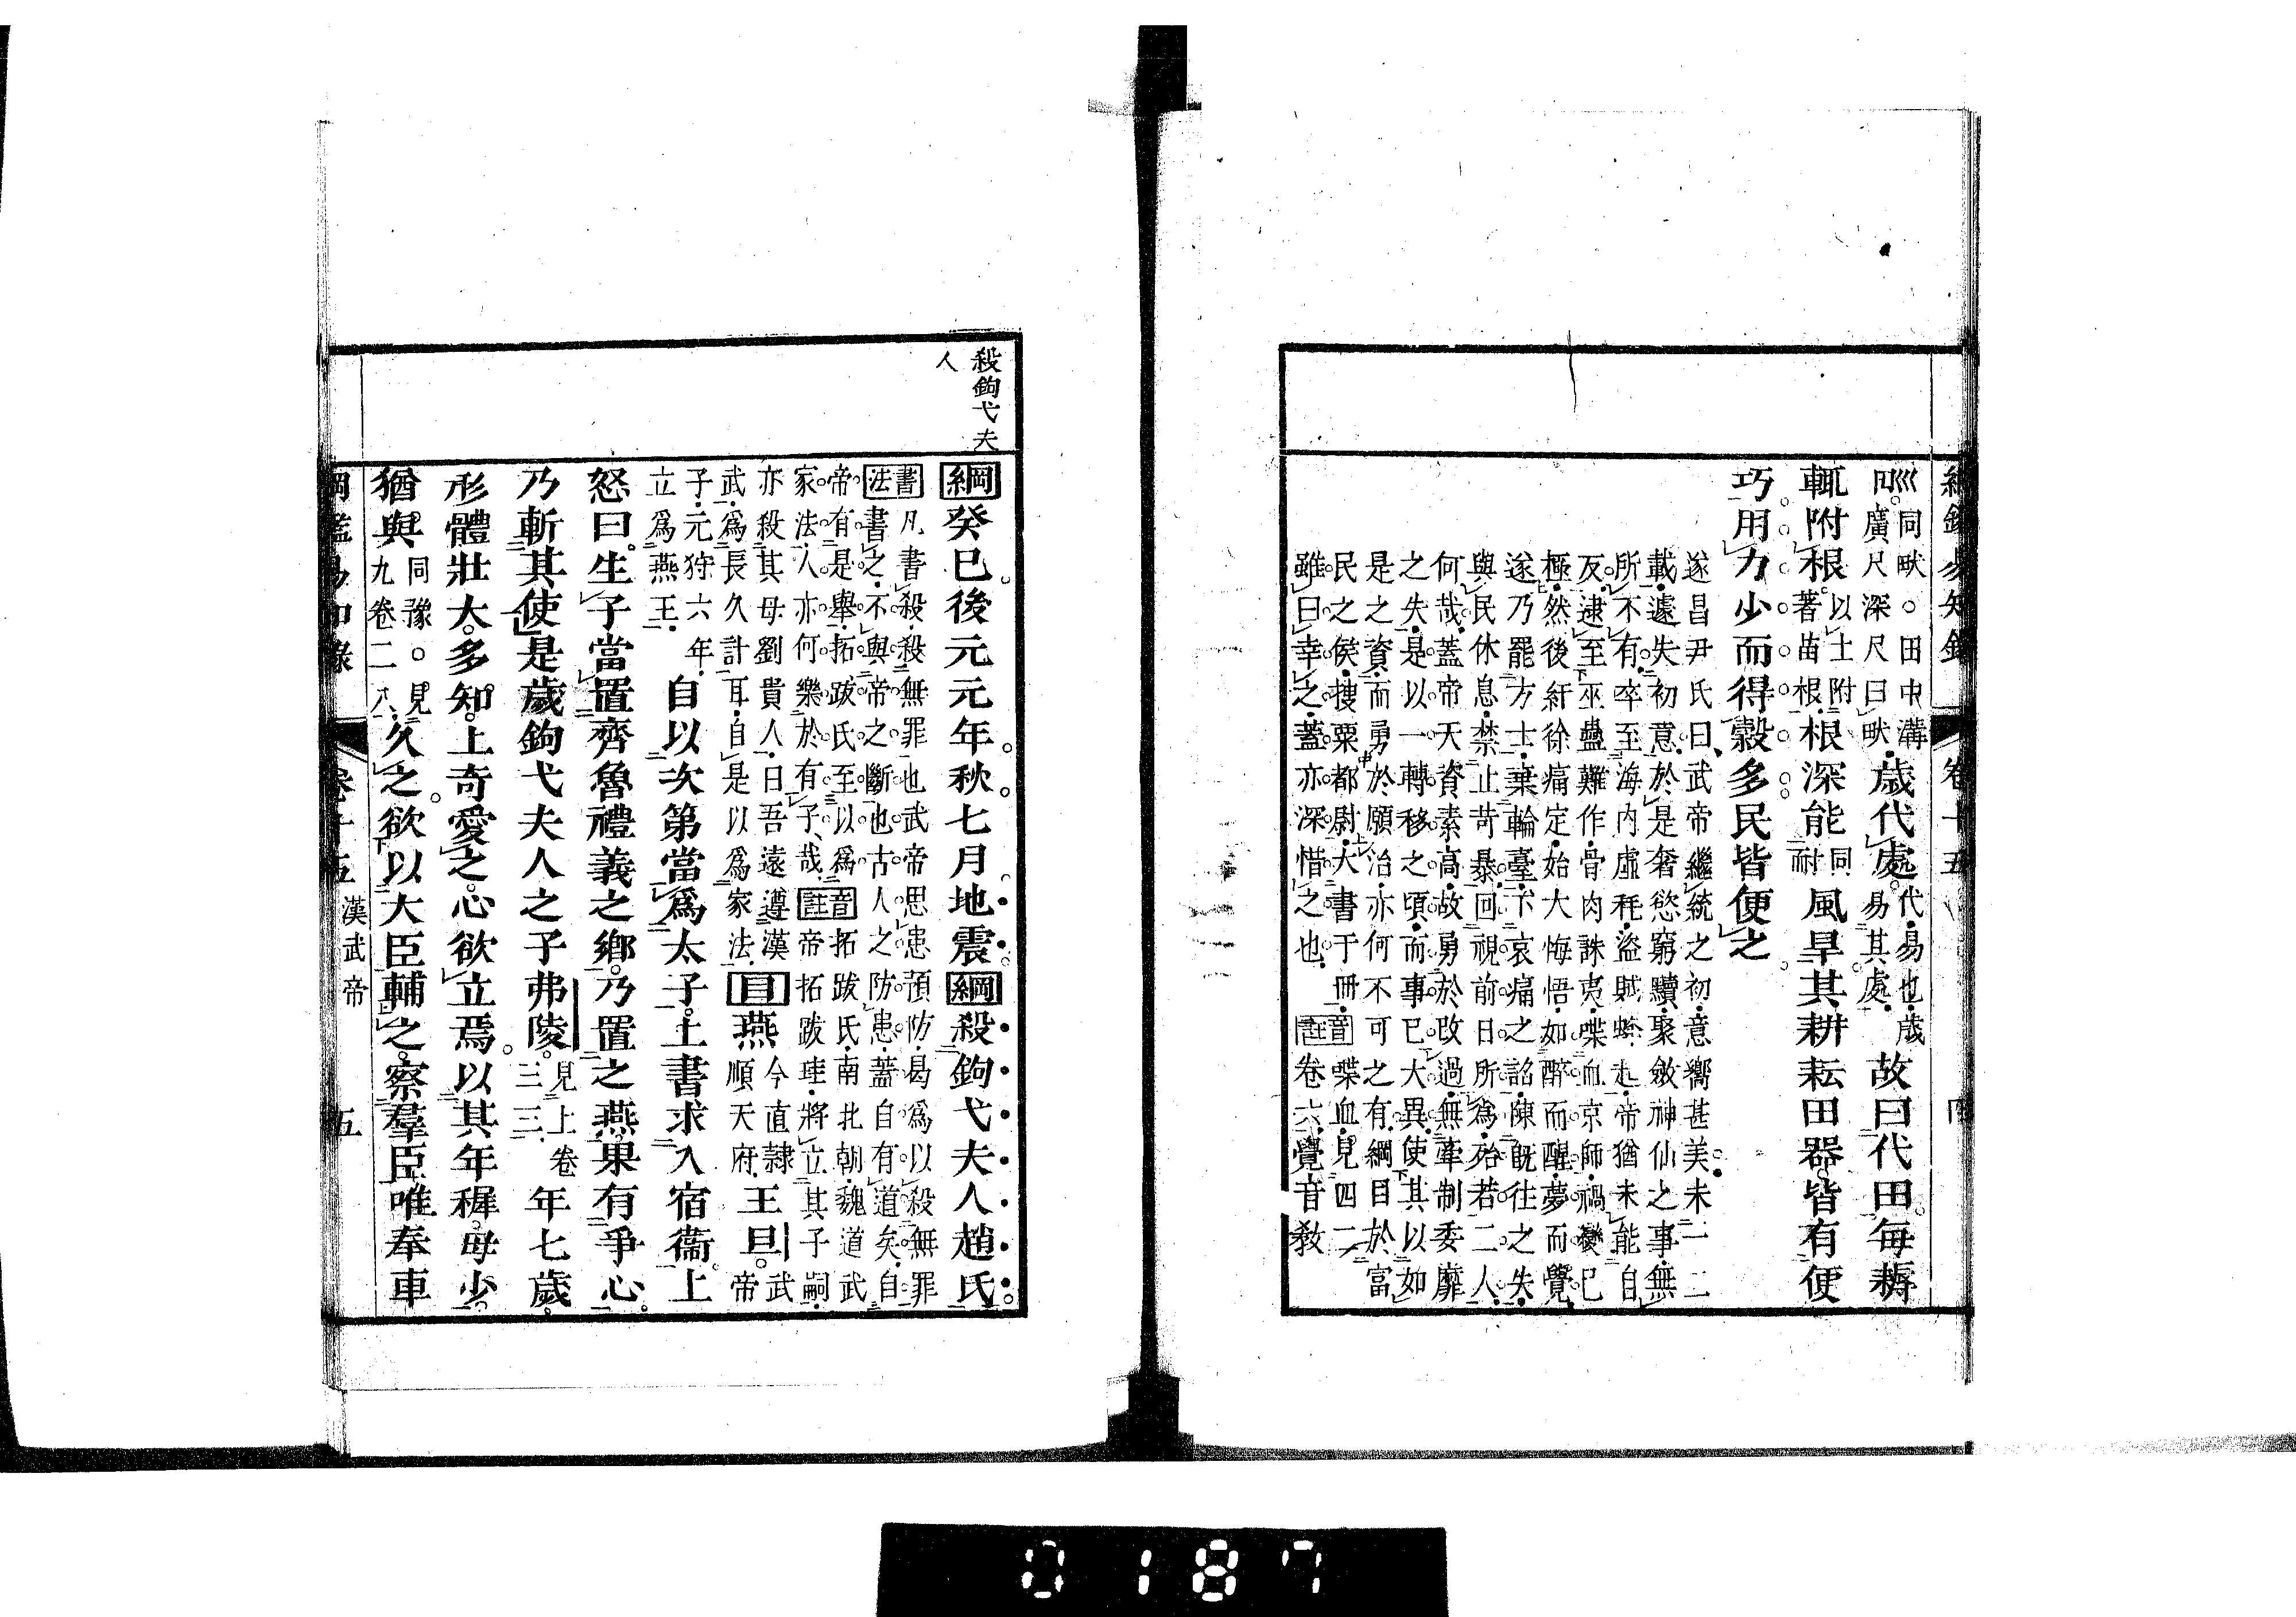 巛同畎。田中溝
𠛎廣尺深尺曰畎歲代處代易也歲易其處故曰代田每耨
輒附根以土附著苗根根深能同耐風旱其耕耘田器皆有便
巧用力少而得穀多民皆便之
遂昌尹氏曰武帝繼統之初意嚮甚美未一二
載遽失初意於是奢慾窮黷聚斂神仙之事無
所不有卒至海內虛耗盜賊蠭起帝猶未能自
反逮至巫蠱難作骨肉誅夷喋血京師禍變已
極然後紆徐痛定始大悔悟如醉而醒夢而覺
遂乃罷方士棄輪臺下哀痛之詔陳既往之失
與民休息禁止苛暴回視前日所爲殆若二人
何哉蓋帝天資素高故勇於改過無牽制委靡
之失是以一轉移之頃而事已大異使其以如
是之資而勇於願治亦何不可之有綱目於富
民之侯搜粟都尉大書于冊音喋血見四二
雖曰幸之蓋亦深惜之也註卷六覺音教
卷十五
殺鉤弋夫
人
綱癸巳後元元年秋七月地震綱殺鉤弋夫人趙氏
書凡書殺殺無罪也武帝思患預防曷爲以殺無罪
法書之不與帝之斷也古人之防患蓋自有道矣自
帝有是舉拓跋氏至以爲音拓跋氏南北朝魏道武
家法人亦何樂於有子哉註帝拓跋珪將立其子嗣
亦殺其母劉貴人曰吾遠遵漢
武爲長久計耳自是以爲家法目燕今直隸順天府王旦武帝
子元狩六年
立爲燕王自以次第當爲太子上書求入宿衞上
怒曰生子當置齊魯禮義之鄉乃置之燕果有爭心
乃斬其使是歲鉤弋夫人之子弗陵見上卷三三年七歲
形體壯大多知上奇愛之心欲立焉以其年穉母少
猶與同豫。見九卷二八久之欲以大臣輔之察羣臣唯奉車
漢武帝
五
0187